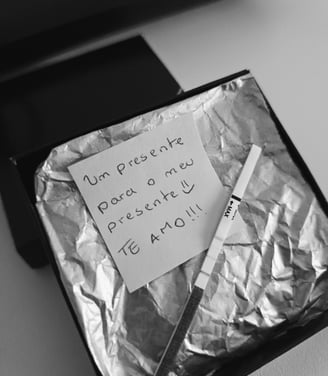 Um presente
para o meu
presente!!
TE AMO!!!
MAX